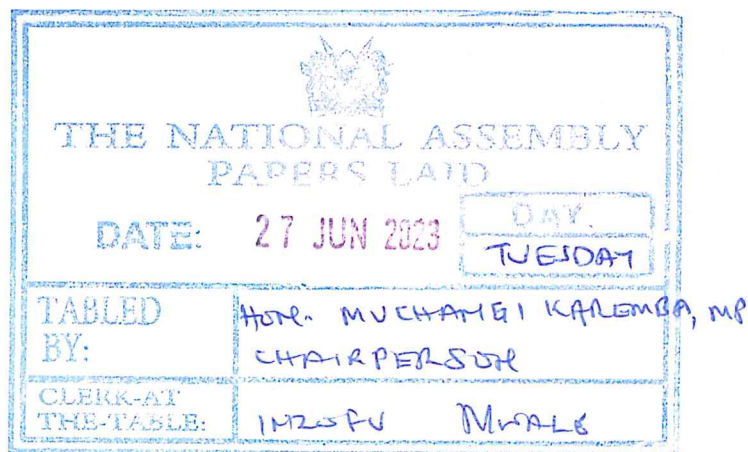 THE NATIONAL ASSEMBLY
PAPERS LAID
DATE: 27 JUN 2023
DAY.
TUESDAY
TABLED BY:
HON. MUCHANGI KAREMBA, MP
CHAIRPERSON
CLERK-AT THE-TABLE:
INZOFU MWALE